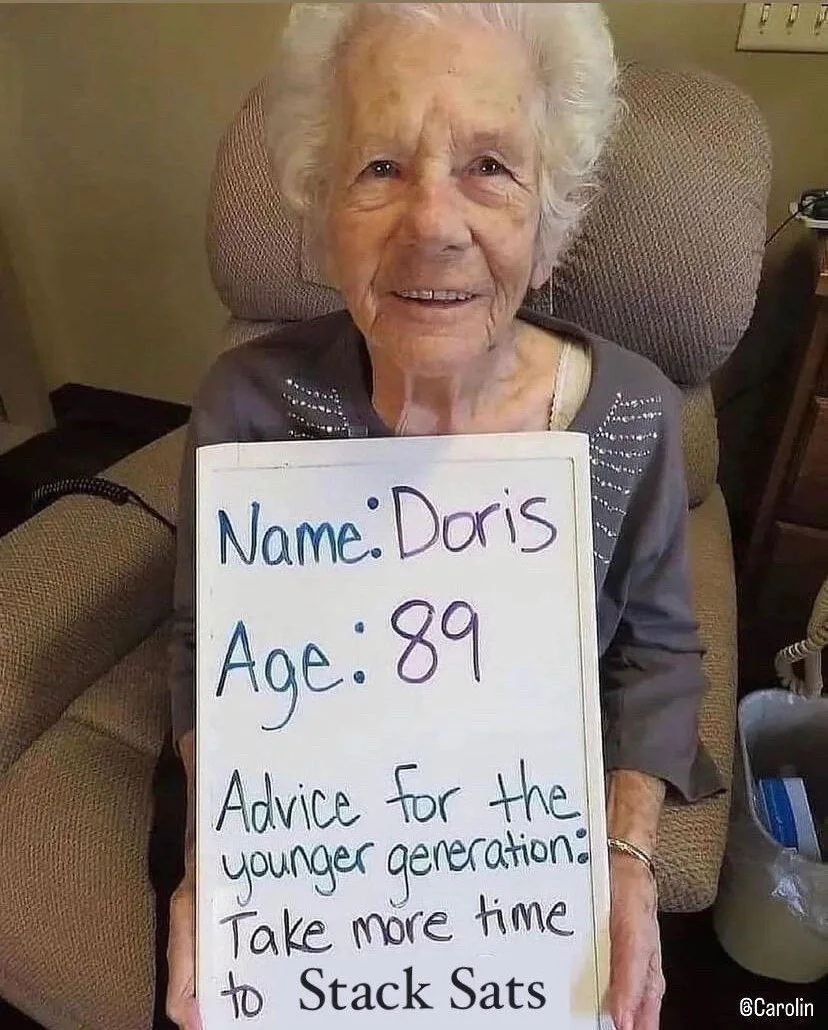 Name: Doris
Age: 89
Advice for the
younger generation:
Take more time
to Stack Sats
@Carolin